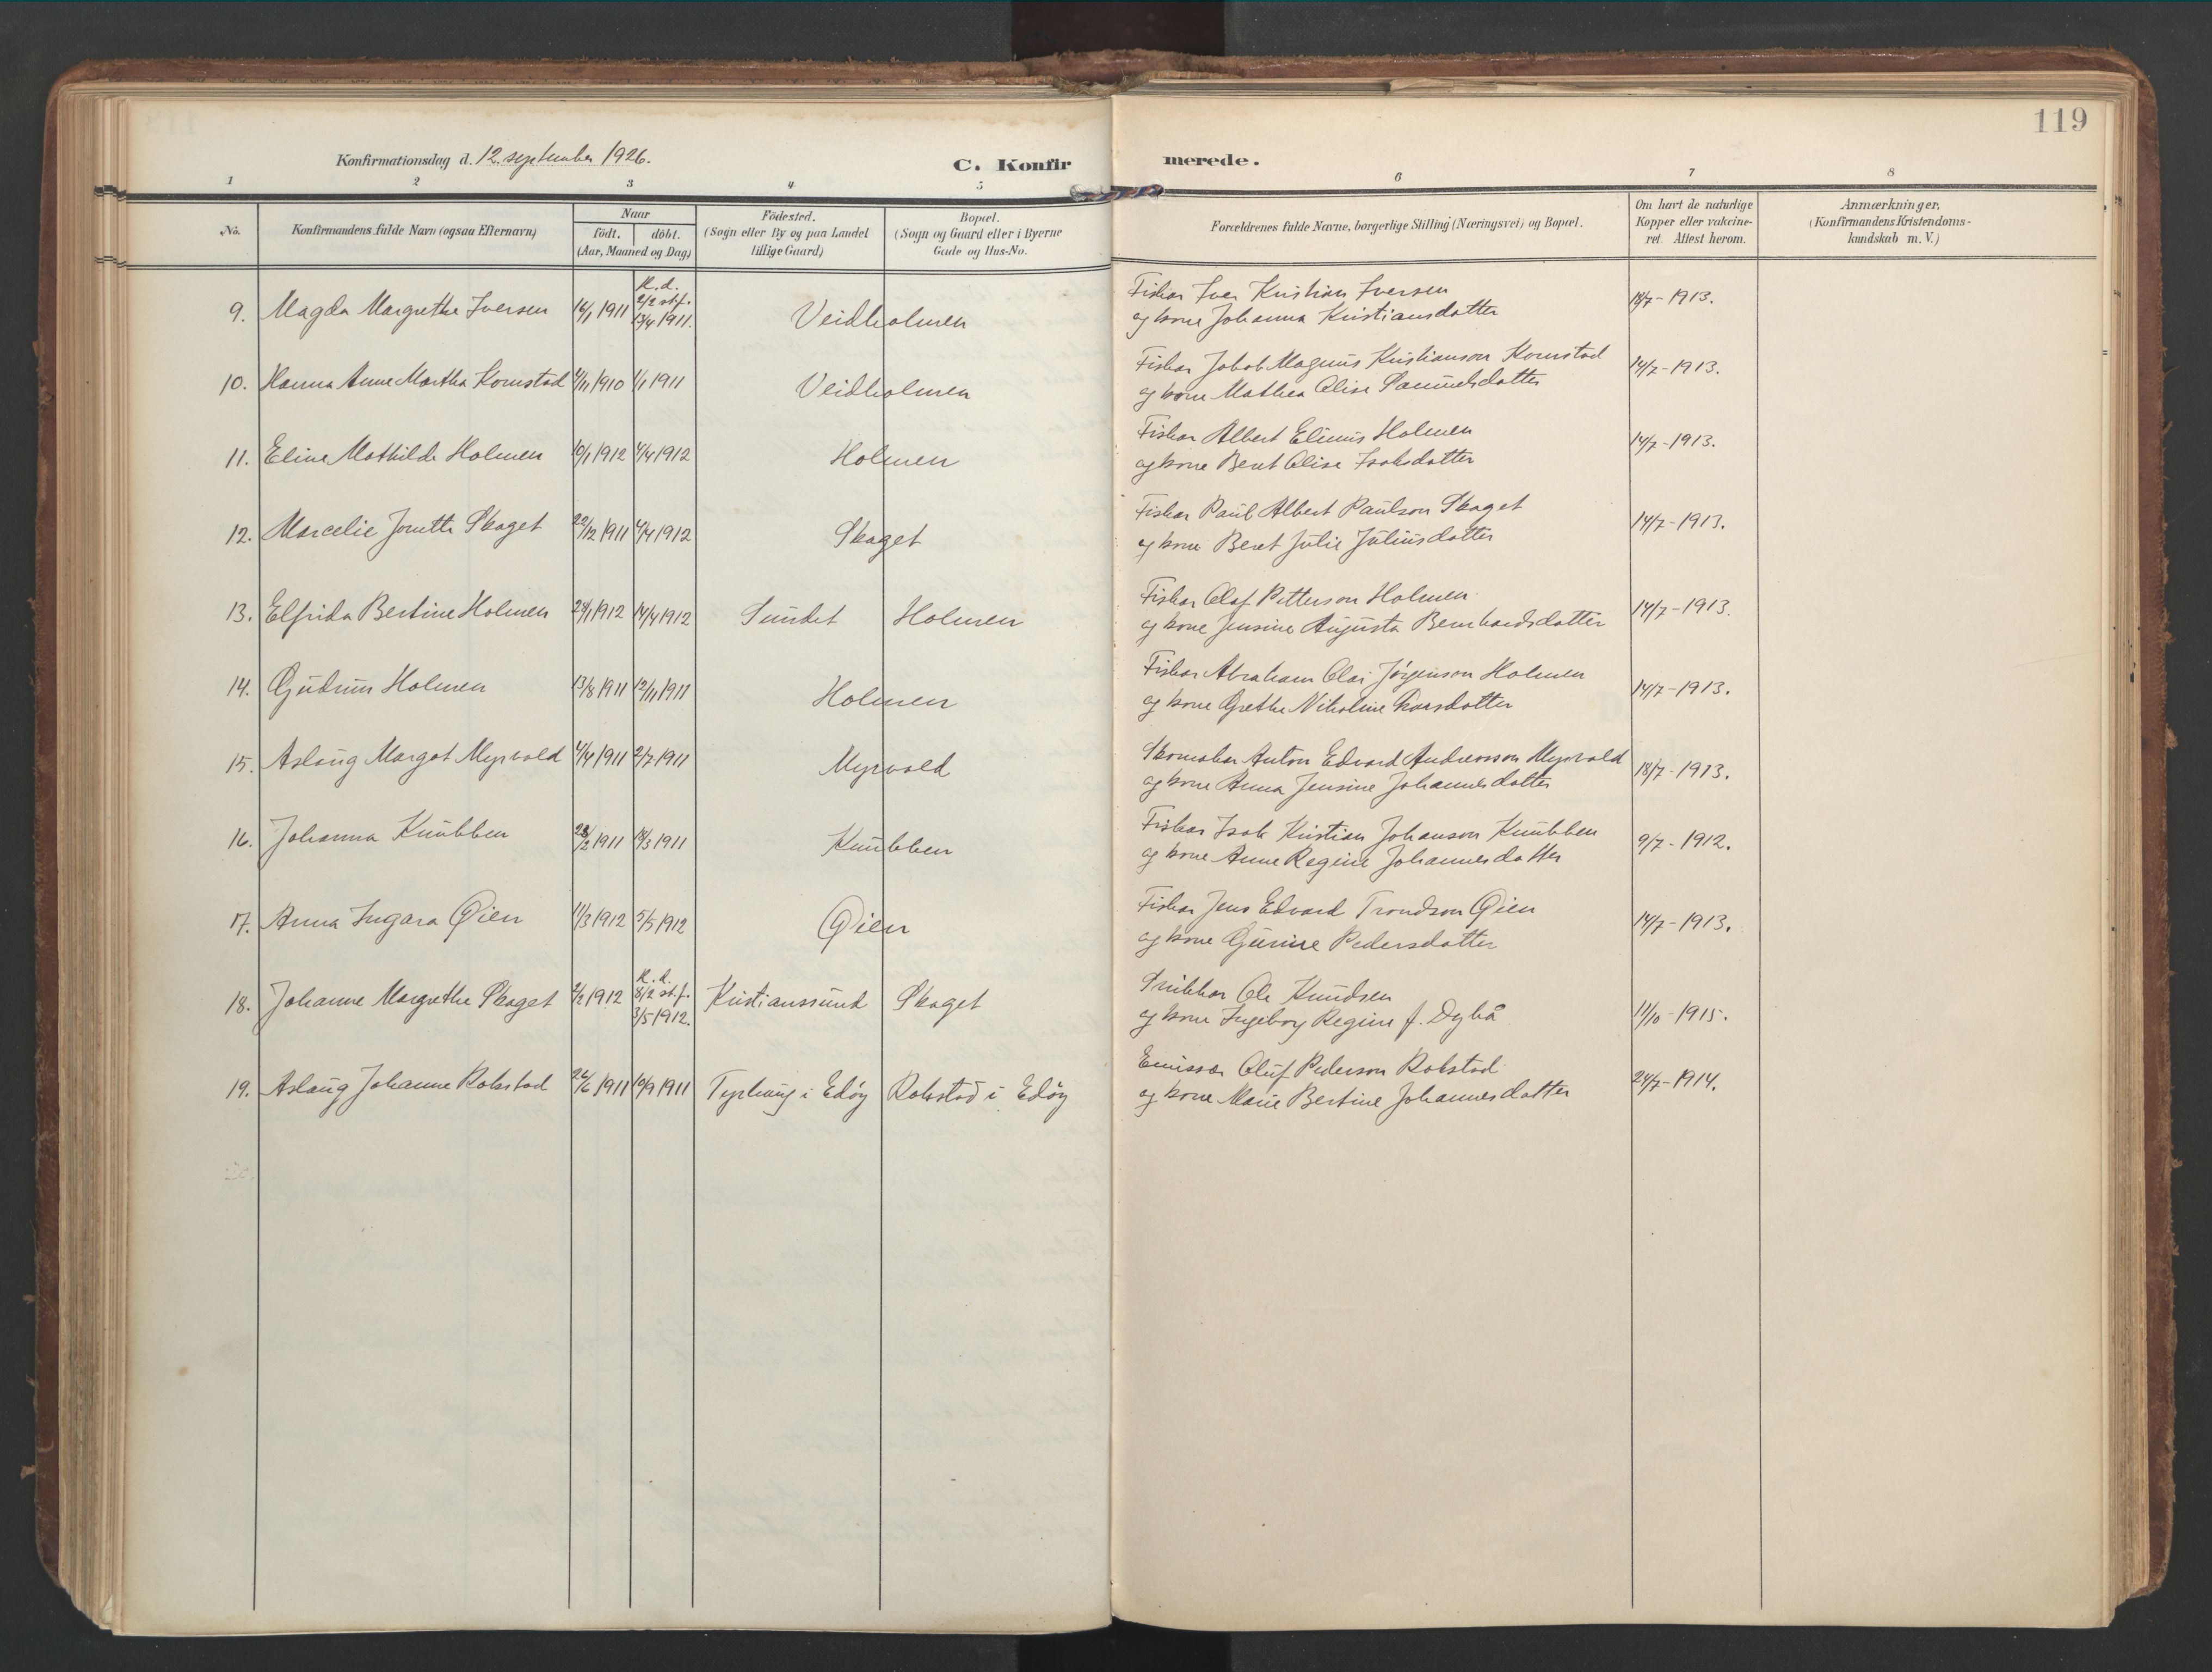 119
Konfirmationsdag d. 12. september 1926.
C. Konfirmerede.
1 2 3 4 5 6 7 8
No.
Konfirmandens fulde Navn (ogsaa Efternavn)
Naar
födt. döbt.
(Aar, Maaned og Dag)
Födested.
(Sogn eller By og paa Landet
tillige Gaard)
Bopæl.
(Sogn og Gaard eller i Byerne
Gade og Hus-No.
Forældrenes fulde Navne, borgerlige Stilling (Næringsvei) og Bopæl.
Om havt de naturlige
Kopper eller vakcine-
ret. Attest herom.
Anmærkninger.
(Konfirmandens Kristendoms-
kundskab m. V.)
9. Magda Margrethe Iversen 14/1 1911 H. d. 2/2 st.f. 13/4 1911. Veidholmen
Fisker Iver Kristian Iversen
og kone Johanna Kristiansdatter
14/7 - 1913.
10. Hanna Anne Martha Komstad 4/11 1910 1/1 1911 Veidholmen
Fisker Jakob Magnus Kristianson Komstad
og kone Mathea Elise Samuelsdatter
14/7 - 1913.
11. Eline Mathilde Holmen 10/1 1912 4/4 1912 Holmen
Fisker Albert Elinus Holmen
og kone Beret Elise Isaksdatter
14/7 - 1913.
12. Marcelie Jonette Skaget 22/12 1911 4/4 1912 Skaget
Fisker Paul Albert Paulson Skaget
og kone Beret Julie Juliusdatter
14/7 - 1913.
13. Elfrida Bertine Holmen 28/1 1912 14/4 1912 Sundet Holmen
Fisker Olaf Petterson Holmen
og kone Jensine Augusta Bernhardsdatter
14/7 - 1913.
14. Gudrun Holmen 13/8 1911 12/11 1911 Holmen
Fisker Abraham Olai Jørgenson Holmen
og kone Grethe Nikoline
14/7 - 1913.
15. Aslaug Margot Myrvold 4/4 1911 2/7 1911 Myrvold
Skomaker Anton Edvard Andreasson Myrvold
og kone Anna Jensine Johannesdatter
18/7 - 1913.
16. Johanna Knubben 23/2 1911 18/3 1911 Knubben
Fisker Isak Kristian Johanson Knubben
og kone Anne Regine Johannesdatter
9/7 - 1912.
17. Anna Ingara Øien 11/3 1912 5/5 1912 Øien
Fisker Jens Edvard Trondson Øien
og kone Gurine Pedersdatter
14/7 - 1913.
18. Johanne Margrethe Skaget 2/2 1912 H. d. 8/2 st.f. 3/5 1912. Kristianssund Skaget
Snikker Ole Knudsen
og kone Ingeborg Regine f. Dybå
11/10 - 1915.
19. Aslaug Johanne Rokstad 26/6 1911 10/9 1911 Tyrhaug i Edøy Rokstad i Edøy
Emissær Oluf Pederson Rokstad
og kone Marie Bertine Johannesdatter
24/7 - 1914.